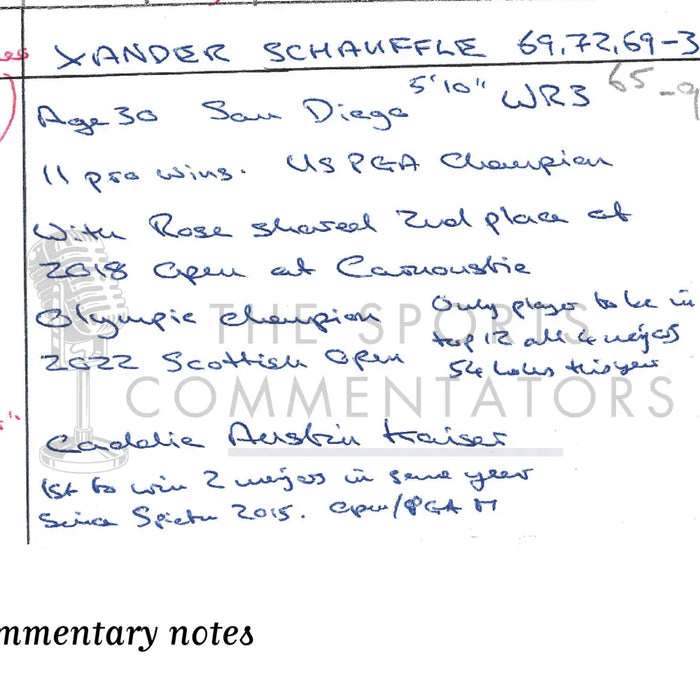 XANDER SCHAUFFLE 69,72,69-3
65-9
Age 30 San Diego 5'10" WR3
11 pro wins. US PGA Champion
With Rose shared 2nd place at
2018 Open at Carnoustie
Olympic champion
2022 Scottish Open
Only player to be in
top 12 all 4 majors
54 holes this year
THE SPORTS
COMMENTATORS
Caddie Austin Kaiser
1st to win 2 majors in same year
Since Spieth 2015. Open/PGA
mmentary notes